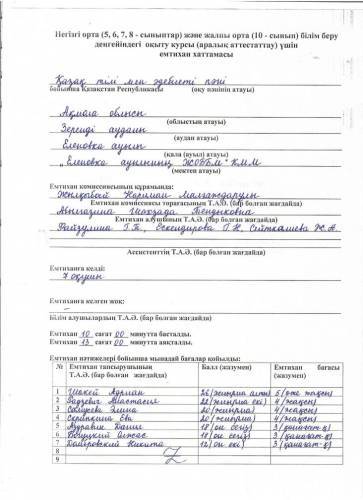 Негізгі орта (5, 6, 7, 8 - сыныптар) және жалпы орта (10 - сынып) білім беру
деңгейіндегі оқыту курсы (аралық аттестаттау) үшін
емтихан хаттамасы
Қазақ тілі мен әдебиеті пәні
бойынша Қазақстан Республикасы (оқу пәнінің атауы)
Ақмола облысы
(облыстың атауы)
Зеренді ауданы
(аудан атауы)
Еленовка ауылы
(қала (ауыл) атауы)
"Еленовка ауылының ЖОББМ" КММ
(мектеп атауы)
Емтихан комиссиясының құрамында:
Нариман
Емтихан комиссиясы төрағасының Т.А.Ә. (бар болған жағдайда)
Емтихан алушының Т.А.Ә. (бар болған жағдайда)
Ескендирова Г.Н. Сейткалиева Ж.А.
Ассистенттің Т.А.Ә. (бар болған жағдайда)
Емтиханға келді:
7 оқушы
Емтиханға келген жоқ:
Білім алушылардың Т.А.Ә. (бар болған жағдайда)
Емтихан 10 сағат 00 минутта басталды.
Емтихан 13 сағат 00 минутта аяқталды.
Емтихан нәтижелері бойынша мынадай бағалар қойылды:
№ Емтихан тапсырушының Т.А.Ә. (бар болған жағдайда) Балл (жазумен) Емтихан бағасы (жазумен)
1 Адриан 26 (жиырма алты) 5 (өте жақсы)
2 Анастасия 22 (жиырма екі) 4 (жақсы)
3 20 (жиырма) 4 (жақсы)
4 Ева 20 (жиырма) 4 (жақсы)
5 18 (он сегіз) 3 (қанағат-қ)
6 18 (он сегіз) 3 (қанағат-қ)
7 Никита 12 (он екі) 3 (қанағат-қ)
8
9